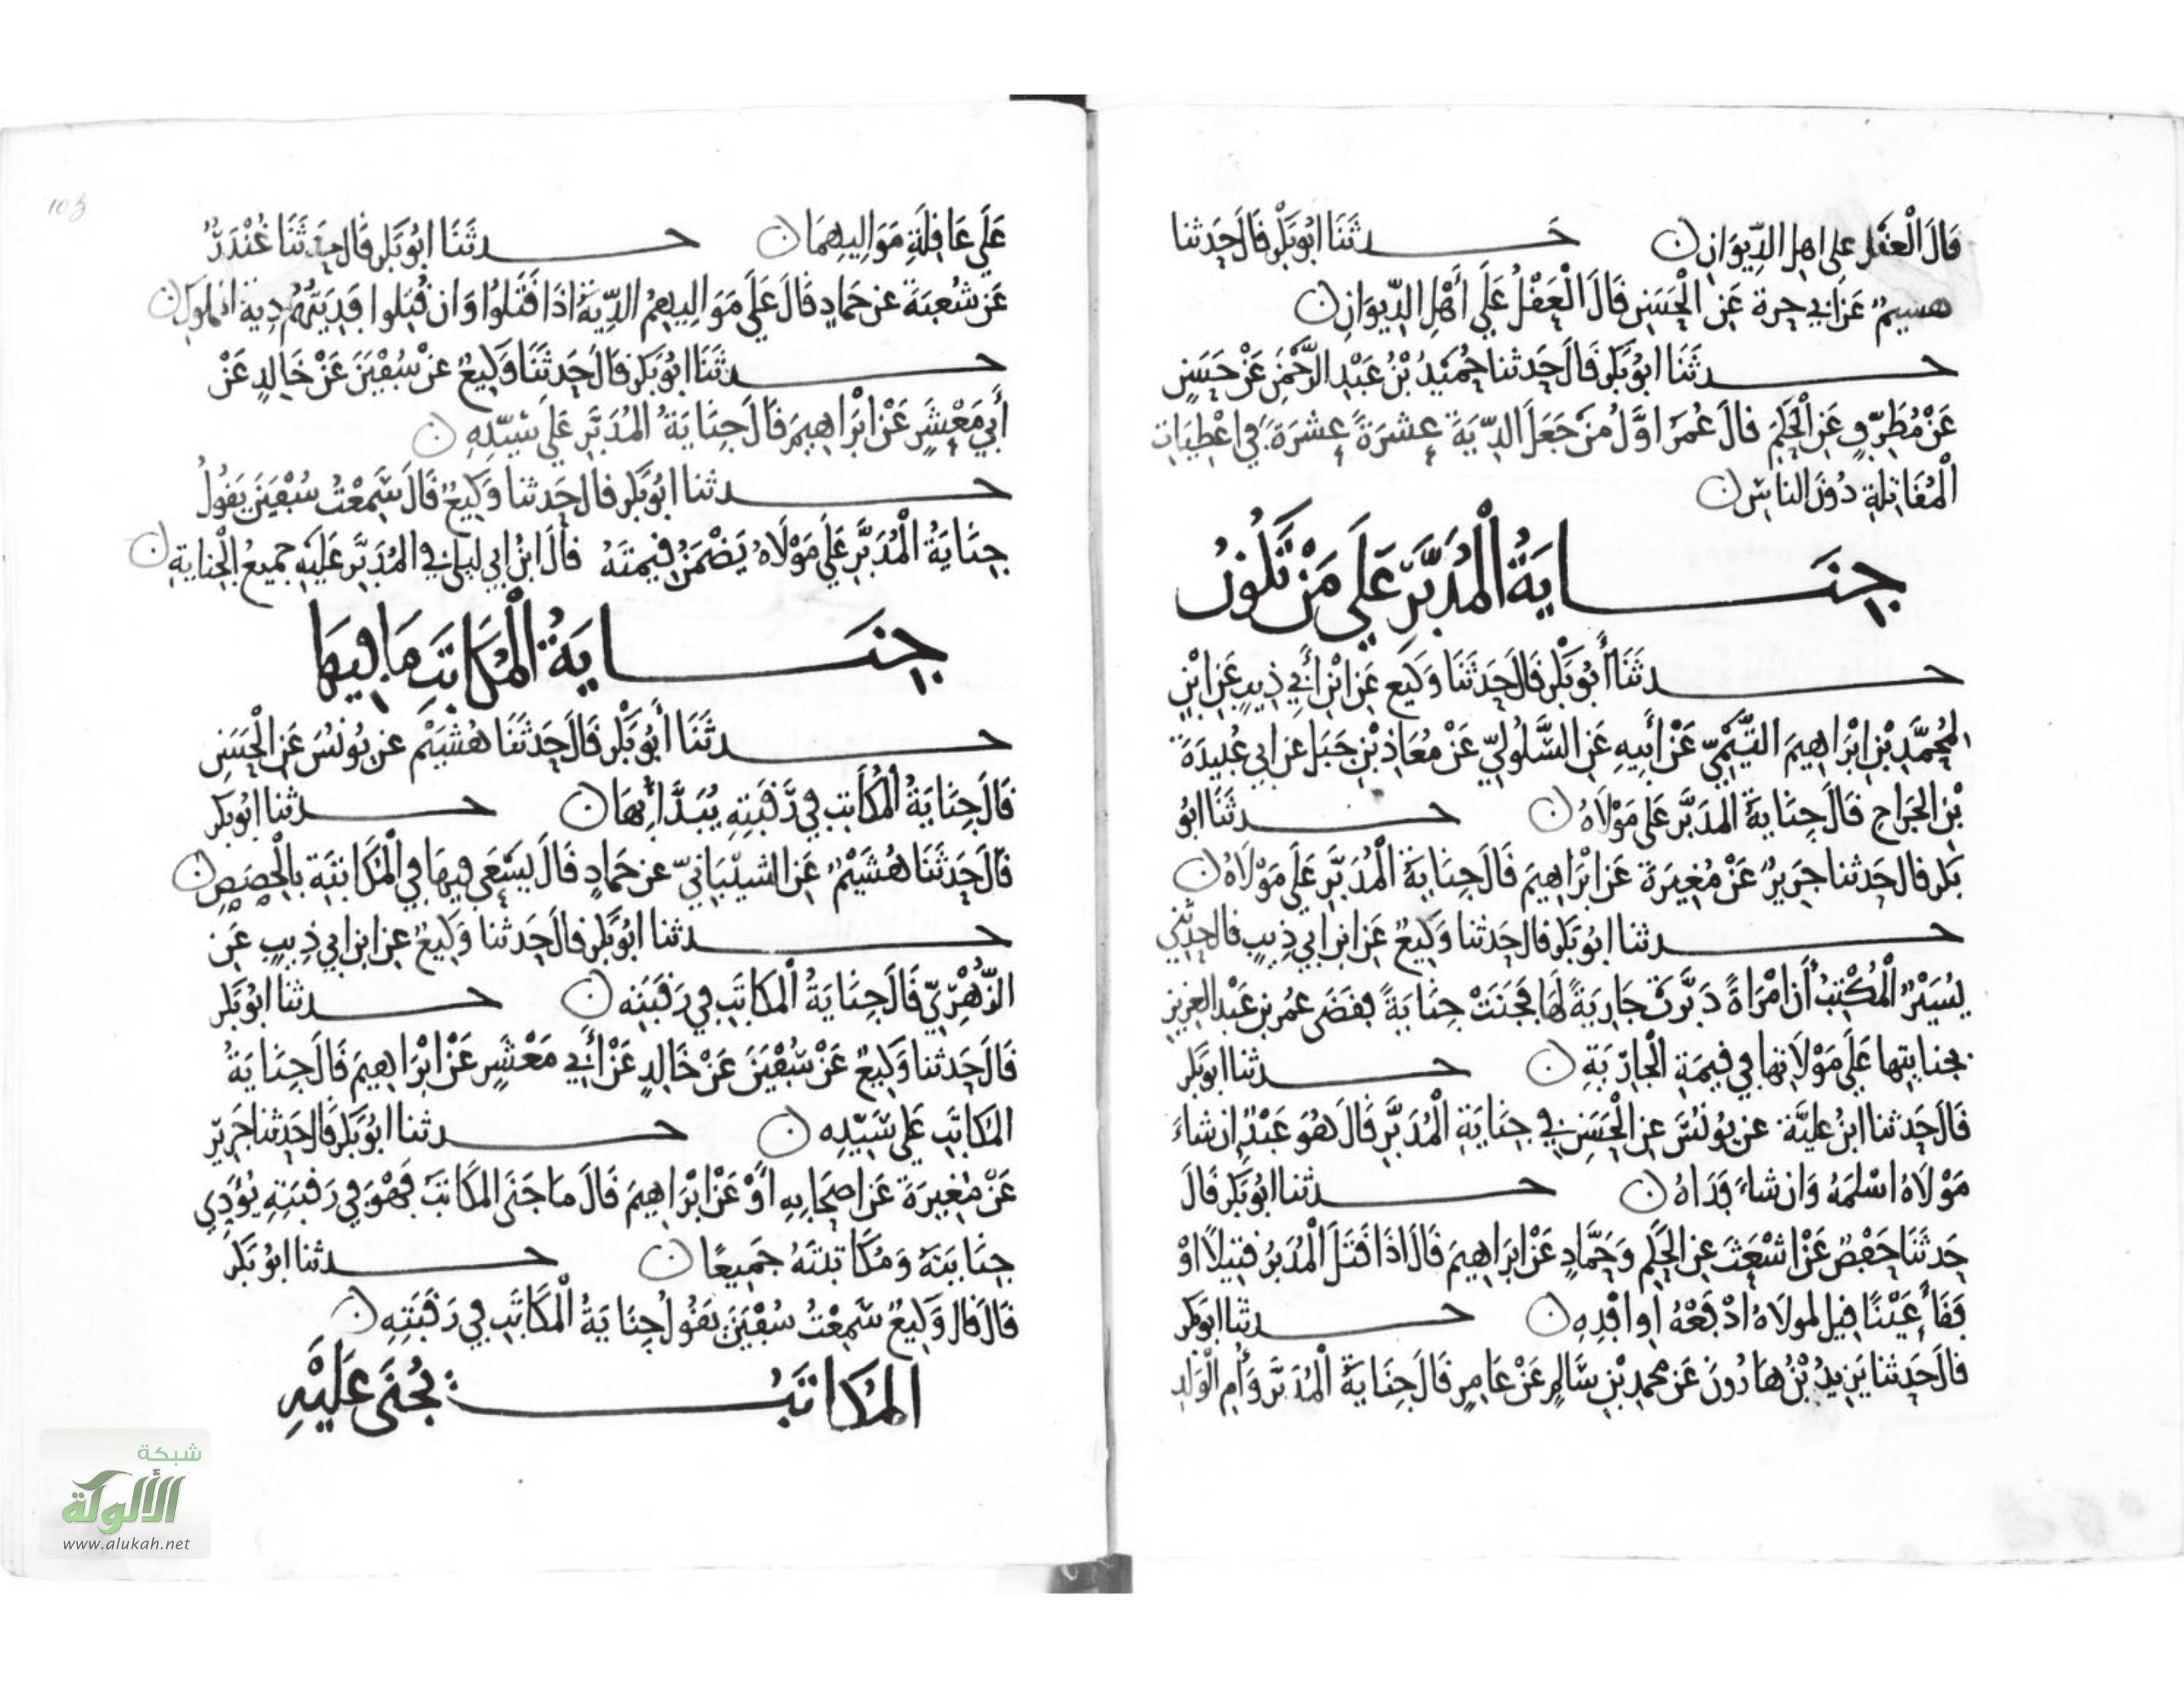 قَالَ الْعَقْل على اهل الدِّيوَانِ ن حَـدثَنَا ابُو بَكْر قَالَ حَدثنا
هشيم عَن ابي حرة عَنِ الْحَسَنِ قَالَ الْعَقْلُ عَلَى أَهْلِ الدِّيوَانِ ن
حـدثَنَا ابُو بَكر قَالَ حَدثنا حُمَيْدُ بْنُ عَبْدِ الرَّحْمَنِ عَنْ حَسَنٍ
عَنْ مُطَرِّفٍ عَنِ الْحَكَمِ قالَ عُمَرُ اوَّلُ مَنْ جَعَلَ الدِّيَةَ عشَرَةً عشرَةً في اعْطِيَاتِ
الْمُقَاتِلَةِ دُونَ الناسِ ن
جِنَـايَةُ الْمُدَبَّرِ عَلَى مَنْ تَكُونُ
حـدثَنَا أَبُو بَكْر قَالَ حَدَثَنَا وَكِيع عَنِ ابْنِ أَبِي ذِيبٍ عَنِ ابْنٍ
لِمُحَمَّدِ بْنِ ابْرَاهِيمَ التَّيْمِيِّ عَنْ أَبِيهِ عَنِ السَّلُولِيِّ عَنْ مُعَاذِ بْنِ جَبَل عن ابي عُبَيدَةَ
بْنِ الجَراحِ قَالَ جِنَايَةُ المدَبَّر عَلى مَوْلَاهُ ن حـدثَنَا ابُو
بَكر قال حَدثنا جَرِيرٌ عَنْ مُغِيرَةَ عَنِ ابْرَاهِيمَ قَالَ جِنَايَةُ الْمُدَبَّرِ عَلَى مَوْلَاهُ ن
حـدثنا ابُو بَكر قال حَدثنا وَكِيعٌ عَنِ ابن ابي ذِيبٍ قال حدثني
يُسَيْرٌ الْمُكْتِبُ أَن امْرَاةً دَبَّرَتْ جَارِيَةً لَهَا فَجَنَتْ جِنَايَةً فقَضَى عمُر بن عَبْد العزيز
بجنايتها عَلَى مَوْلَاتها في قيمَةِ الْجارِيَةِ ن حـدثنا ابو بَكر
قَالَ حَدثنا ابنُ عليَّة عن يُونُسَ عنِ الْحَسَنِ في جِنَايَةِ الْمُدَبَّرِ قَالَ هُوَ عَبْدٌ ان شاءَ
مَوْلَاهُ اسْلَمَهُ وَان شاءَ فَدَاهُ ن حـدثنا ابُو بَكر قَالَ
حَدثَنَا حَفْصٌ عَنْ اشْعَثَ عنِ الحَكَمِ وَحَمَّادٍ عَنْ ابرَاهِيمَ قَالَ اذَا قَتَلَ الْمُدَبَّرُ قتِيلًا اوْ
فَقَأَ عَيْنًا قيل لمولَاهُ ادْفَعْهُ اوِ افْدِهِ ن حـدثنا ابو بكر
قال حَدثنا يَزيدُ بْنُ هَارُونَ عَن محمدِ بْنِ سَالِمٍ عَنْ عَامِرٍ قَالَ جِنَايَةُ الْمُدَبَّرِ وَأُمِ الْوَلدِ
عَلَى عَاقِلَةِ مَوَالِيهِمَا ن حـدثَنَا ابُو بَكر قَالَ حَدثَنَا غُنْدَرٌ
عَن شُعبَةَ عن حَمادٍ قَالَ عَلَى مَوَالِيهِمُ الدِّيَةُ اذَا قَتَلُوا وَان قُتِلوا فَدِيَتُهُمْ دِيَة المملوك ن
حـدثَنَا ابُو بَكر قَالَ حَدثَنَا وَكِيعٌ عَنْ سُفْيَنَ عَنْ خَالِدٍ عَنْ
أَبِي مَعْشَرٍ عَنْ ابْرَاهِيمَ قَالَ جِنَايَةُ المُدَبَّرِ عَلَى سَيِّدِهِ ن
حـدثنا ابُو بَكر قال حَدثنا وَكِيعٌ قَالَ سَمِعْتُ سُفْيَنَ يَقُولُ
جِنَايَةُ الْمُدَبَّرِ عَلَى مَوْلَاهُ يَضْمَنُ قِيمتَهُ قالَ ابنُ ابي ليلى في المُدَبَّرِ عَلَيْهِ جميعُ الْجِنايَةِ ن
جِنَـايَةُ الْمُكَاتَبِ مَا فِيهَا
حـدثَنَا أَبُو بَكْر قَالَ حَدثَنَا هُشَيْم عن يُونُسَ عَنِ الْحَسَنِ
قَالَ جِنَايَةُ الْمُكَاتَبِ فِي رَقَبَتِهِ يُبَدَّأُ بِهَا ن حـدثنا ابُو بَكر
قَالَ حَدثَنَا هُشَيْمٌ عَنِ الشيْبَانيِّ عن حَمادٍ قَالَ يَسْعَى فيهَا في الْمُكَاتَبَةِ بالْحِصَصِ ن
حـدثنا ابُو بَكر قالَ حَدثنا وَكِيعٌ عنِ ابن ابي ذِيبٍ عَن
الزُّهْرِيِّ قَالَ جِنَايَةُ الْمكَاتَبِ فِي رَقَبَتِه ن حـدثنا ابُو بَكر
قَالَ حَدثنا وَكِيعٌ عَنْ سُفْيَنَ عَنْ خَالِدٍ عَنْ أَبِي مَعْشَرٍ عَنْ ابْرَاهِيمَ قَالَ جِنَايَةُ
المكَاتَبِ عَلَى سَيِّدِه ن حـدثنا ابُو بَكر قَالَ حَدثنا جَرِيرٌ
عَنْ مُغِيرَةَ عَن اصحَابِهِ أَوْ عَنْ ابْرَاهِيمَ قَالَ مَا جَنَى المكَاتَبُ فَهْوَ فِي رَقَبَتِهِ يُؤَدِي
جِنَايَتَهُ وَمُكَاتَبَتَهُ جَمِيعًا ن حـدثنا ابُو بَكر
قَالَ قال وَكِيعٌ سَمِعْتُ سُفْيَنَ يَقُولُ جِنَايَةُ الْمُكَاتَبِ فِي رَقَبَتِهِ ن
المُكَاتَبُ يُجْنَى عَلَيْهِ
شبكة
الألوكة
www.alukah.net